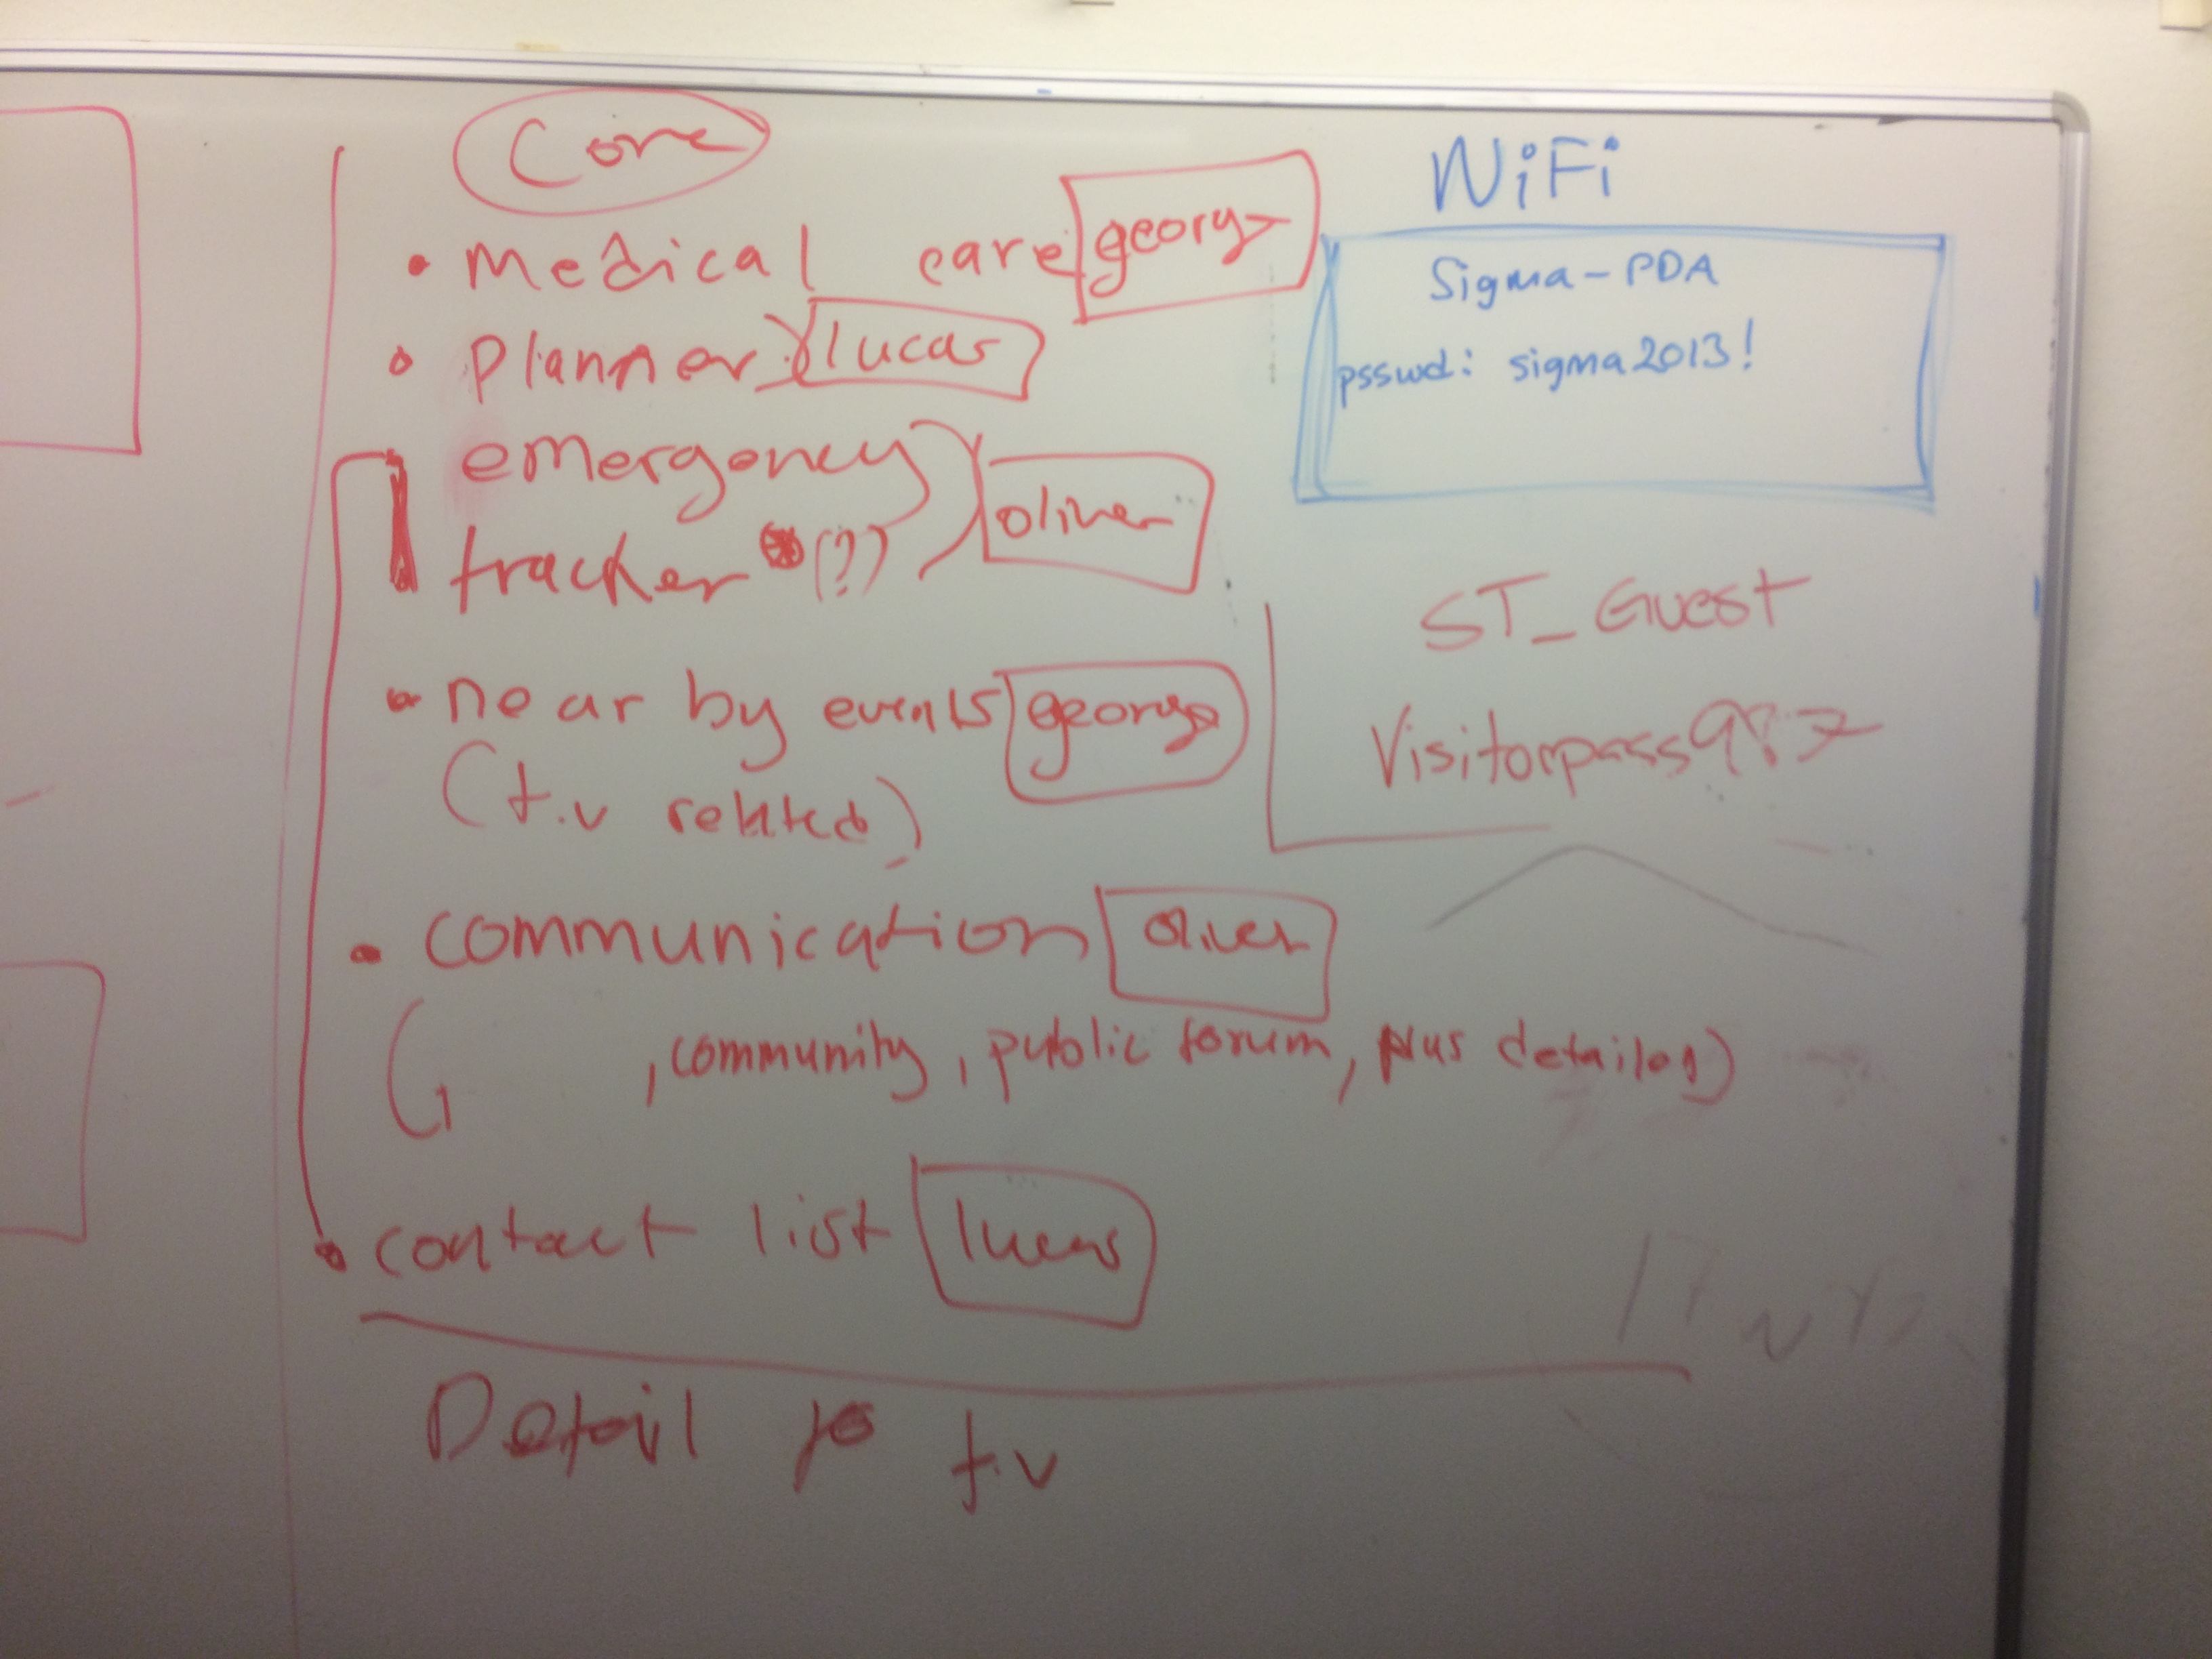 Core
• medical care george
• planner lucas
emergency
tracker (?) oliver
• near by events george
(t.v related)
• communication oliver
( , community, public forum, plus details)
• contact list lucas
Detail t.v
WiFi
Sigma-PDA
psswd: sigma2013!
ST_Guest